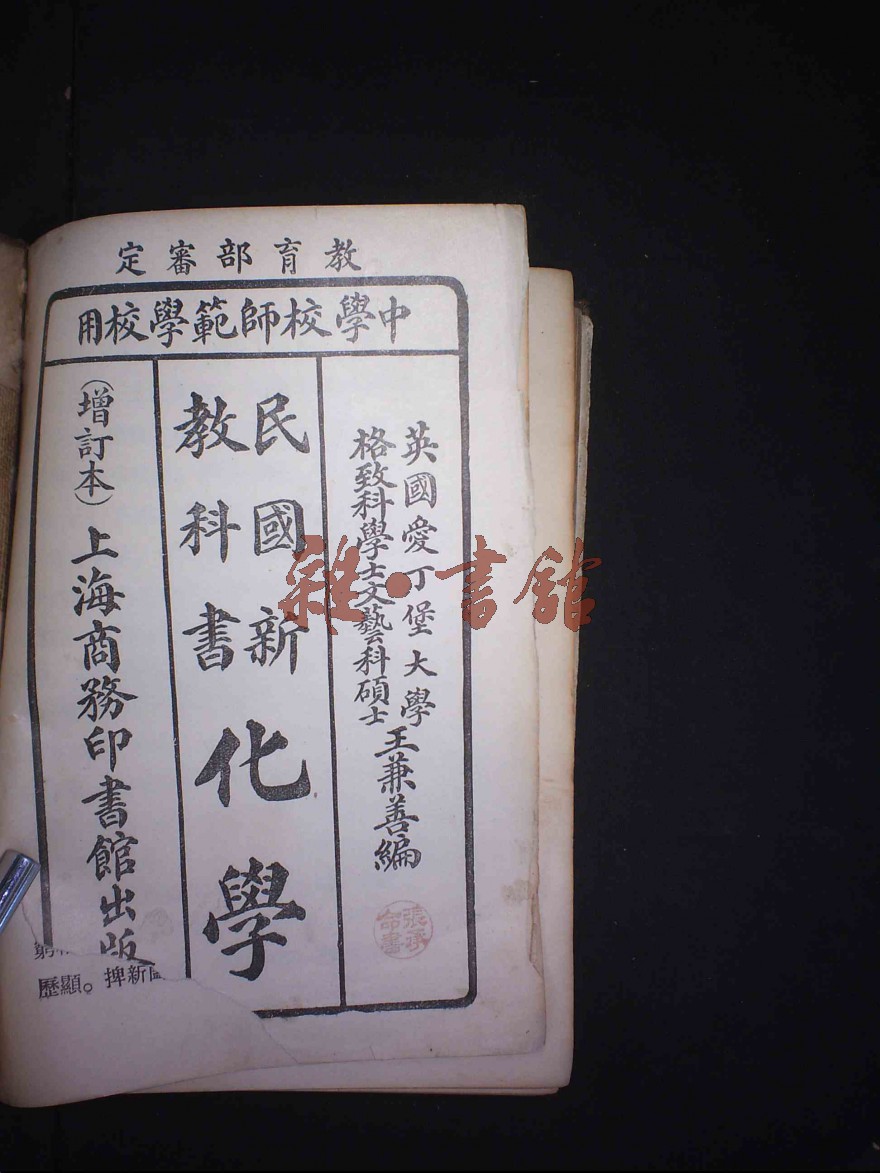 教育部審定
中學校師範學校用
英國愛丁堡大學
格致科學士文藝科碩士
王兼善編
民國新
教科書
化學
(增訂本)
上海商務印書館出版
雜·書館